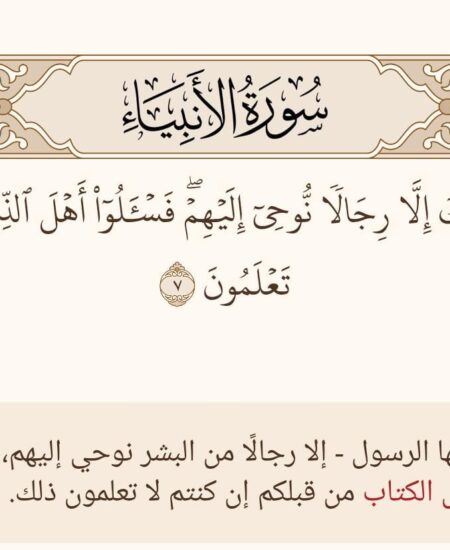 سُورَةُ الأَنبِيَاءِ
إِلَّا رِجَالٗا نُّوحِيٓ إِلَيۡهِمۡۖ فَسۡـَٔلُوٓاْ أَهۡلَ
تَعۡلَمُونَ ٧
الرسول - إلا رجالًا من البشر نوحي إليهم،
الكتاب من قبلكم إن كنتم لا تعلمون ذلك.